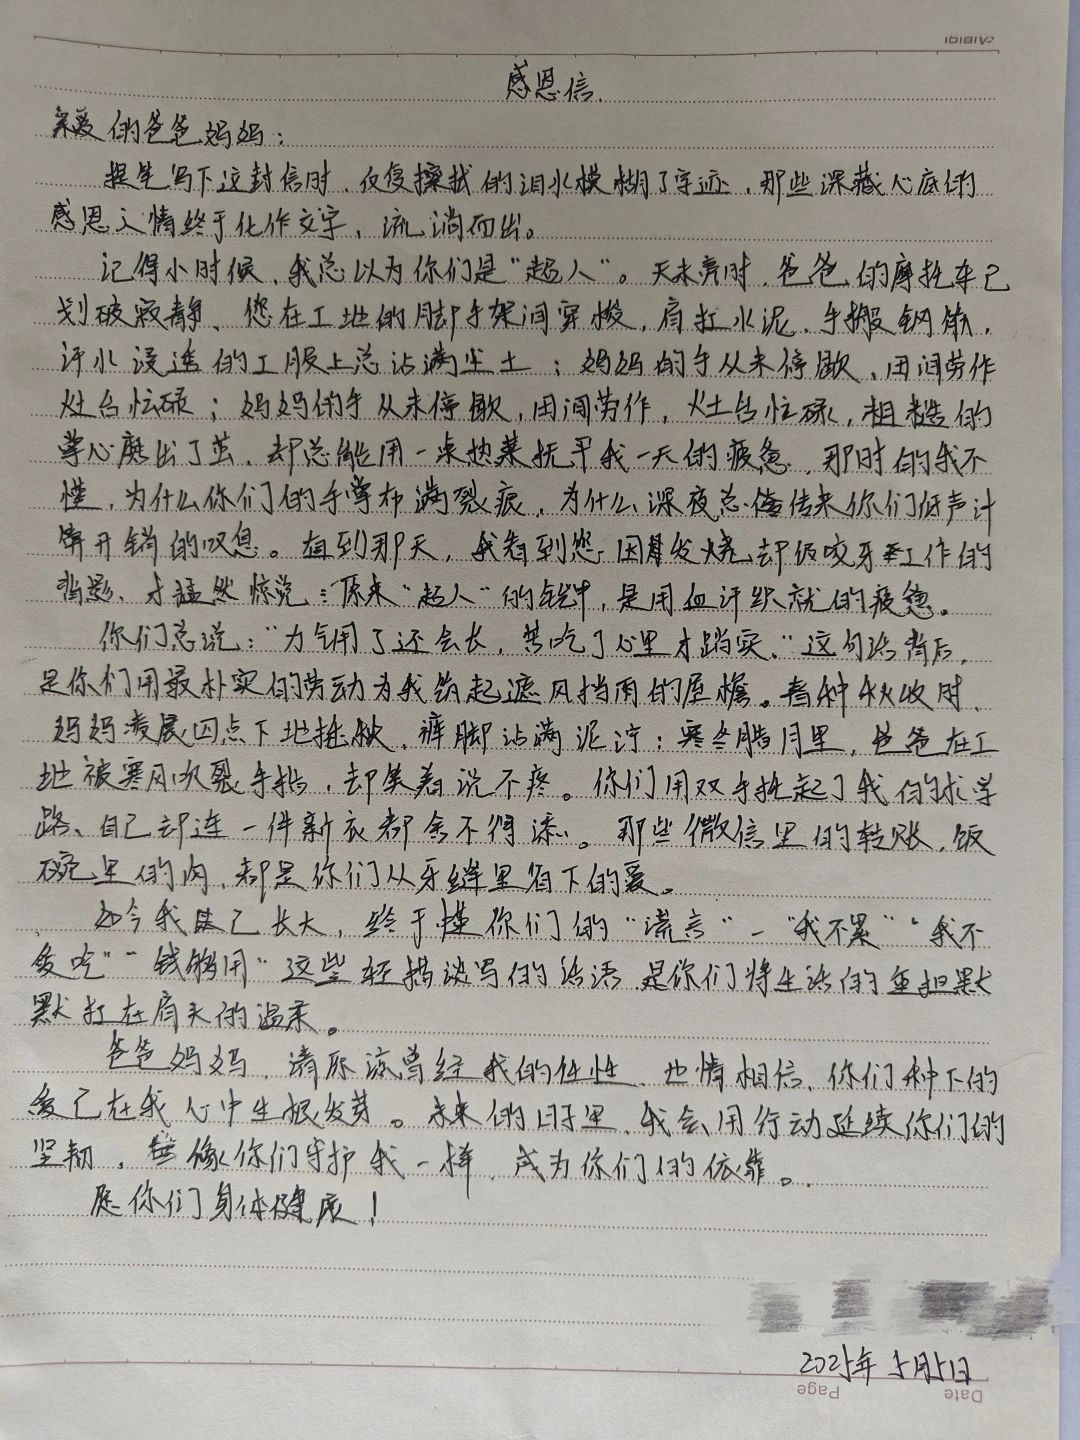 感恩信
亲爱的爸爸妈妈：
提笔写下这封信时，仅侵擦拭的泪水模糊了字迹，那些深藏心底的
感恩之情终于化作文字，流淌而出。
记得小时候，我总以为你们是“超人”。天未亮时，爸爸的摩托车已
划破寂静、您在工地的脚手架间穿梭，肩扛水泥、手搬钢筋，
汗水浸透的工服上总沾满尘土；妈妈的手从未停歇、田间劳作
灶台忙碌；妈妈的手从未停歇，田间劳作，灶台忙碌，粗糙的
掌心磨出了茧，却总能用一桌热菜抚平我一天的疲惫，那时的我不
懂，为什么你们的手掌布满裂痕，为什么深夜总会传来你们低声计
算开销的叹息。直到那天，我看到您因发烧却仍咬牙工作的
背影、才猛然惊觉：原来“超人”的铠甲，是用血汗织就的疲惫。
你们总说：“力气用了还会长，苦吃了心里才踏实，”这句话背后，
是你们用最朴实的劳动为我筑起遮风挡雨的屋檐。春种秋收时，
妈妈凌晨四点下地插秧、裤脚沾满泥泞；寒冬腊月里，爸爸在工
地被寒风吹裂手指，却笑着说不疼。你们用双手托起了我的求学
路、自己却连一件新衣都舍不得添。那些微信里的转账，饭
碗里的肉，都是你们从牙缝里省下的爱。
如今我已长大，终于懂你们的“谎言”—“我不累”“我不
爱吃”“钱够用”这些轻描淡写的话语，是你们将生活的重担默
默扛在肩头的温柔。
爸爸妈妈，请原谅曾经我的任性、也情相信，你们种下的
爱已在我心中生根发芽。未来的日子里，我会用行动延续你们的
坚韧，像你们守护我一样，成为你们的依靠。
愿你们身体健康！
2025年5月5日
Page
Date